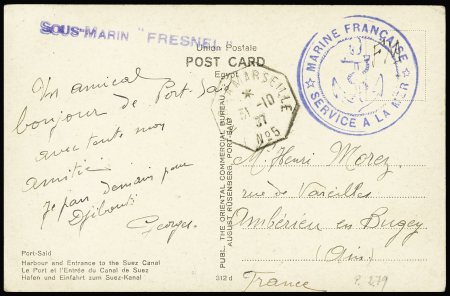 SOUS-MARIN "FRESNEL"
Union Postale
POST CARD
Egypt
MARINE FRANÇAISE
SERVICE A LA MER
MARSEILLE
31-10
37
N°5
Un amical
bonjour de Port Saïd
avec toute mon
amitié.
Je pars demain pour
Djibouti
Georges.
M. Henri Morez
rue de Vareilles
Ambérieu en Bugey
(Ain)
France
PUBL. THE ORIENTAL COMMERCIAL BUREAU
AUGUST ROSENBERG, PORT-SAID
Port-Said
Harbour and Entrance to the Suez Canal
Le Port et l'Entrée du Canal de Suez
Hafen und Einfahrt zum Suez-Kanal
312 d